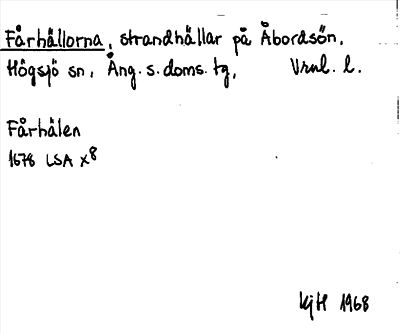 Fårhällorna, strandhällar på Åbordsön.
Högsjö sn, Ång. s. doms. tg, Vrnl. l.
Fårhälen
1678 LSA X8
KjH 1968